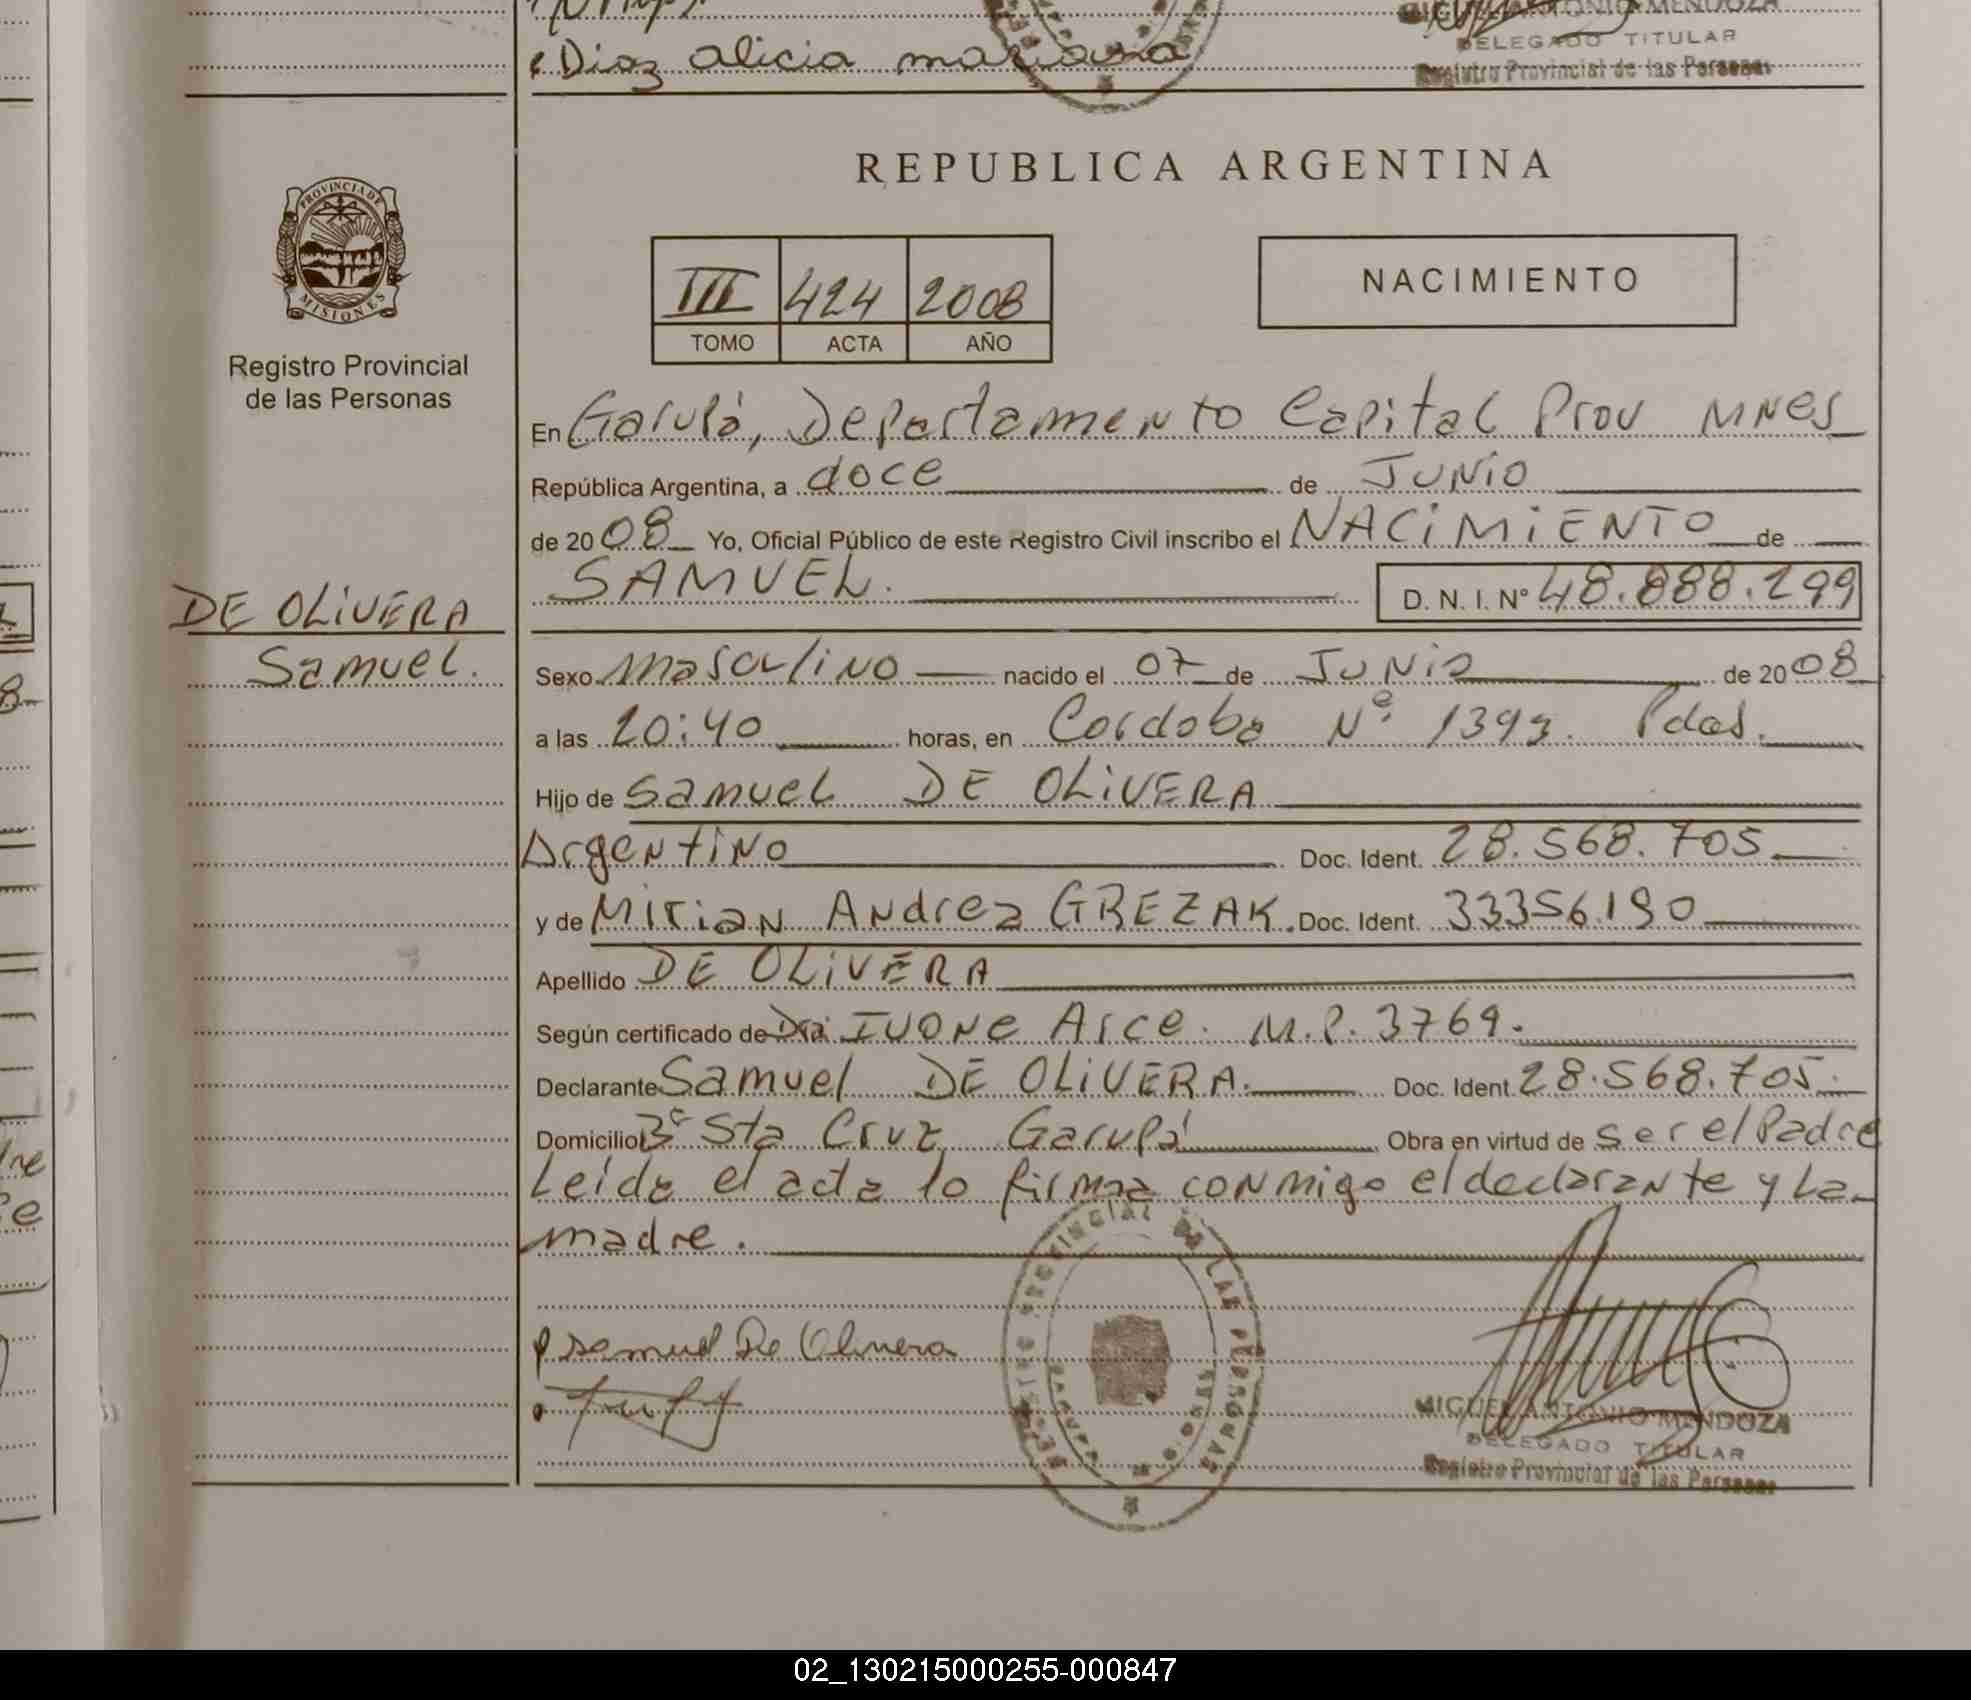 Diaz alicia mariana
DELEGADO TITULAR
Registro Provincial de las Personas
REPUBLICA ARGENTINA
PROVINCIA DE
MISIONES
Registro Provincial
de las Personas
III 424 2008
TOMO ACTA AÑO
NACIMIENTO
En Garupá, Departamento Capital Prov MNES
República Argentina, a doce de JUNIO
de 2008 Yo, Oficial Público de este Registro Civil inscribo el NACIMIENTO de
SAMUEL. D. N. I. Nº 48.888.299
DE OLIVERA
Samuel.
Sexo Masculino nacido el 07 de JUNIO de 2008
a las 20:40 horas, en Cordoba Nº 1393. Pdas.
Hijo de Samuel DE OLIVERA
Argentino Doc. Ident. 28.568.705
y de Mirian Andrea GREZAK. Doc. Ident. 33356.190
Apellido DE OLIVERA
Según certificado de Dra IVONE Arce. M.P. 3769.
Declarante Samuel DE OLIVERA. Doc. Ident 28.568.705.
Domicilio Bº Sta Cruz Garupá Obra en virtud de ser el Padre
Leida el acta lo firma conmigo el declarante y La
madre.
Samuel De Olivera
REGISTRO PROVINCIAL DE LAS PERSONAS
GARUPA
MISIONES
MIGUEL ANTONIO MENDOZA
DELEGADO TITULAR
Registro Provincial de las Personas
02_130215000255-000847